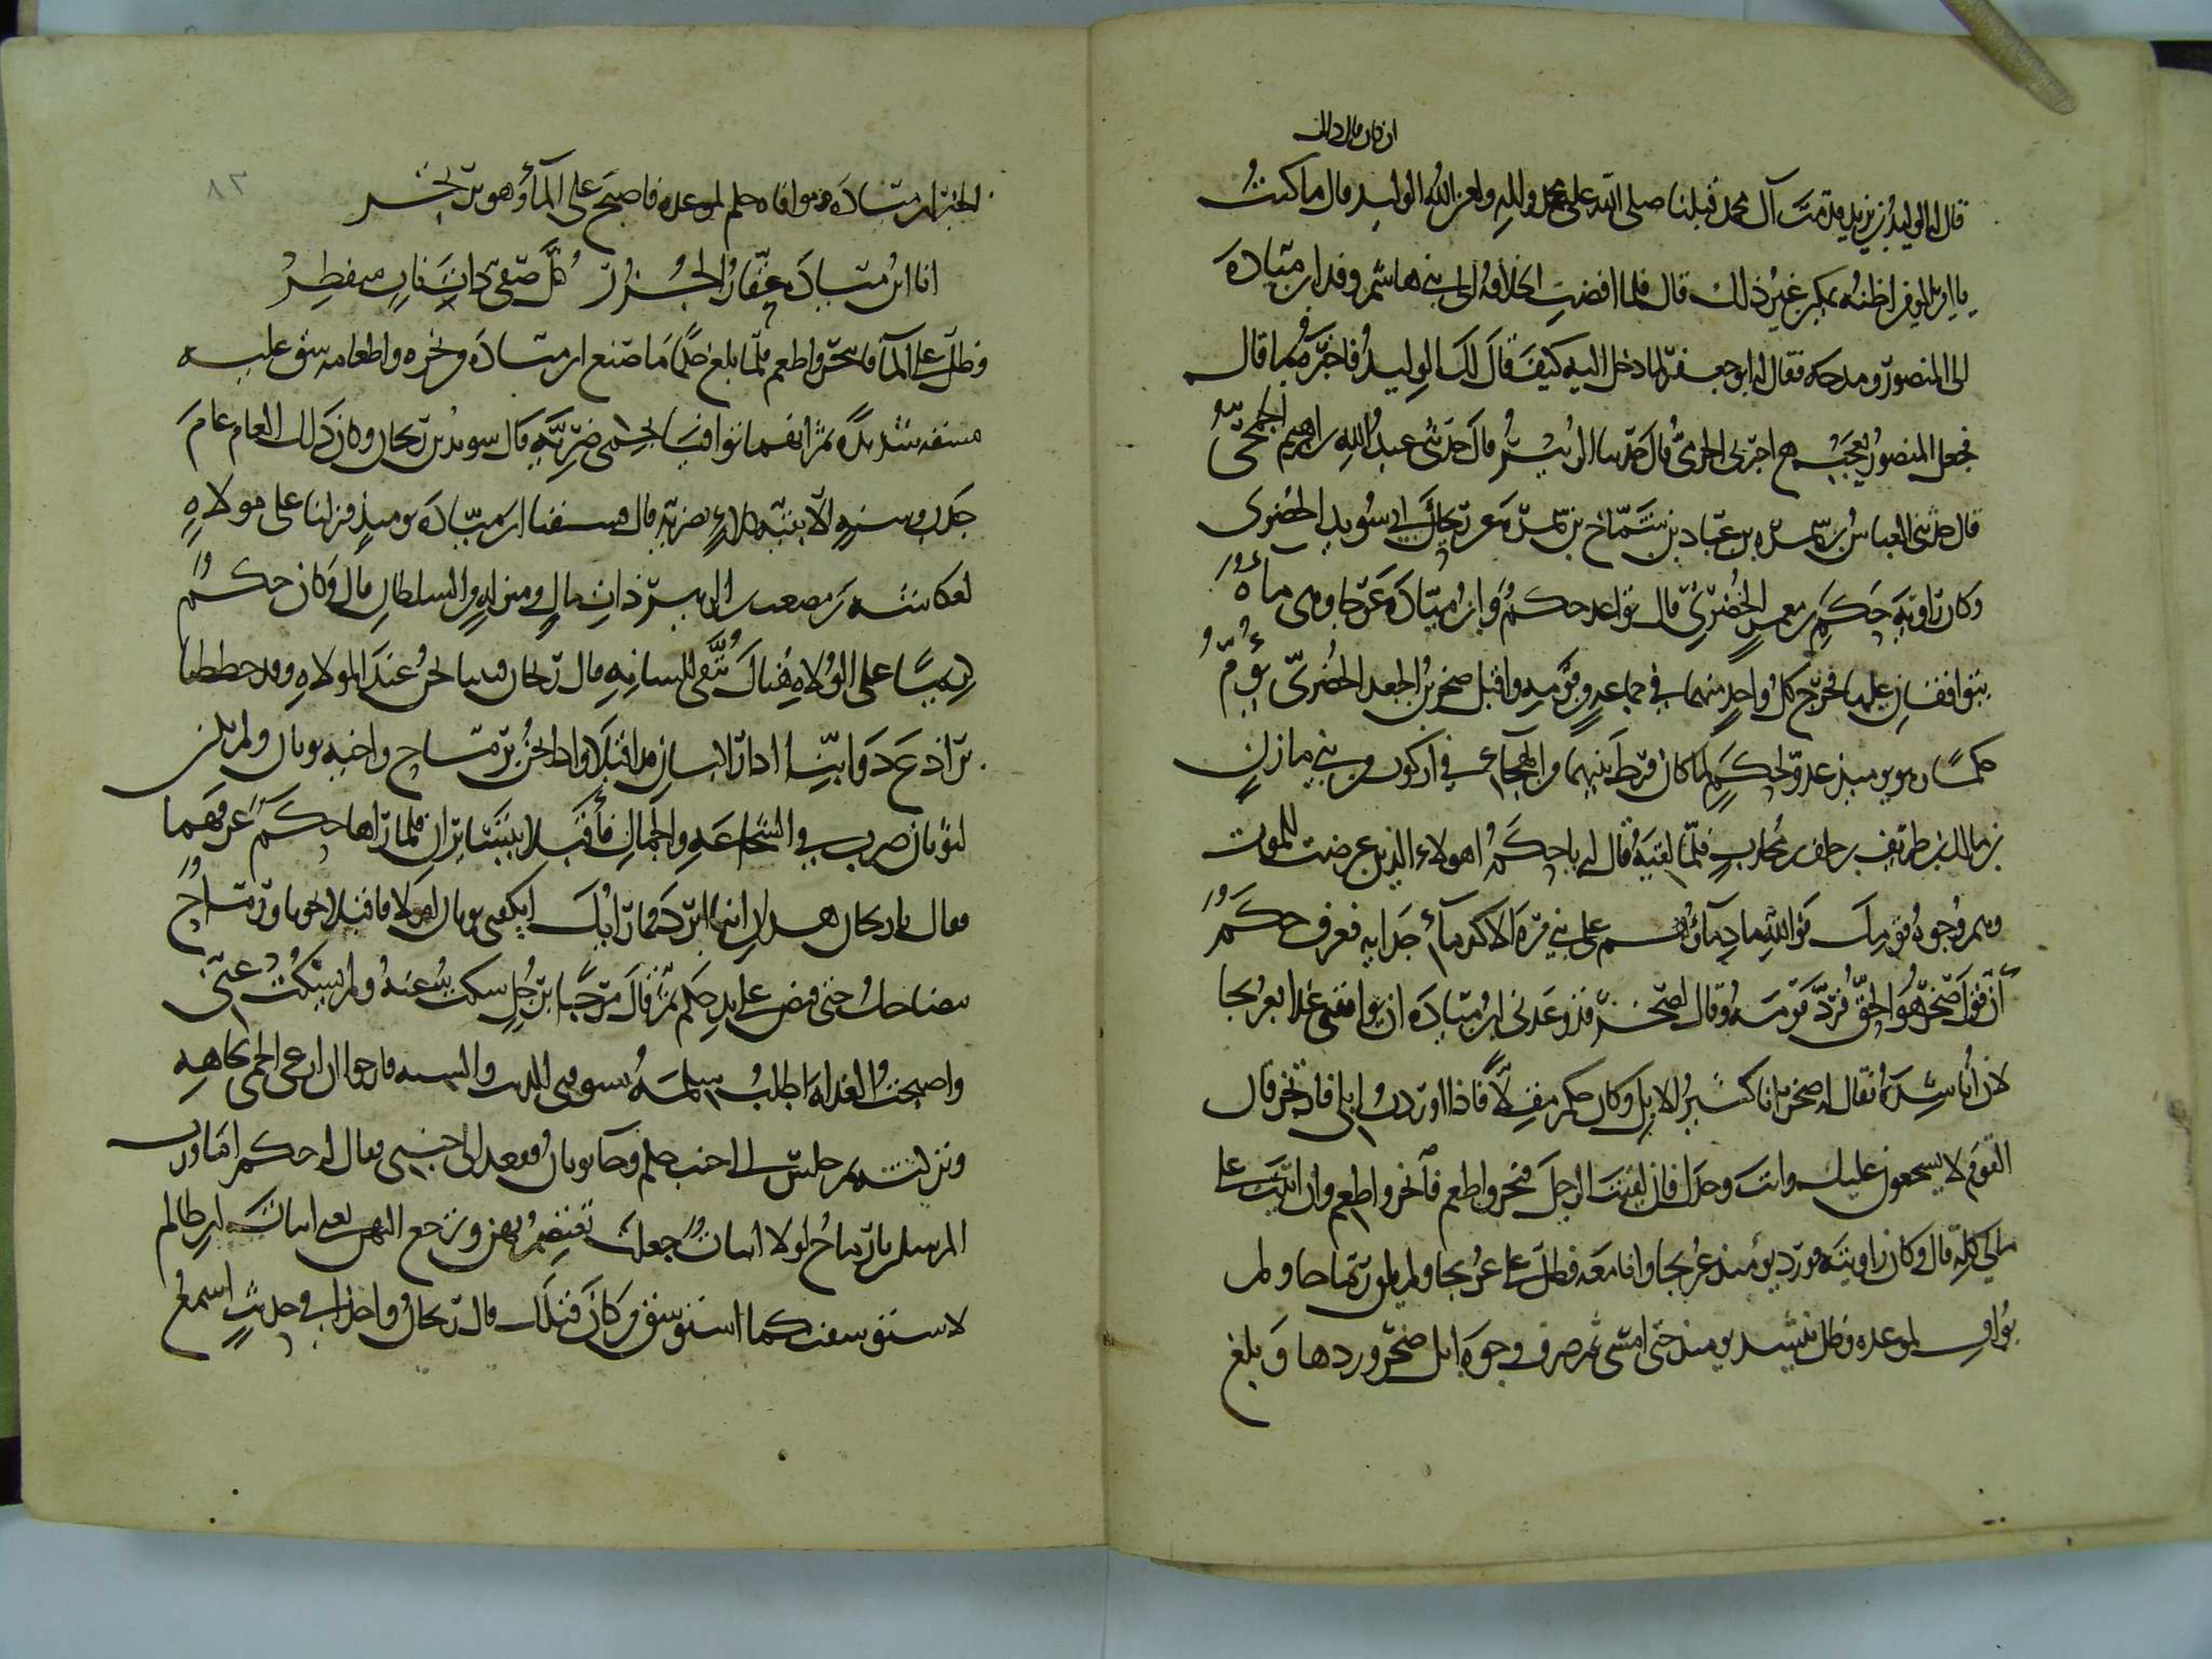 قال لي الوليد بن يزيد قدمت آل محمد قبلنا صلى الله على محمد وآله ولعن الله الوليد قال ما كنت
يا امير المومنين اظنه يمكن غير ذلك قال فلما افضت الخلافة الى بني هاشم وفد ابن ميادة
الى المنصور ومدحه فقال له ابو جعفر لما دخل اليه كيف قال لك الوليد فاخبره بما قال
فجعل المنصور يعجب اخبرني الحرمي قال حدثنا الزبير قال حدثني عبد الله بن ابرهيم الجمحي
قال حدثني العباس بن سمرة بن عباد بن شماخ بن سمرة عن ريحان بن سويد الخضري
وكان راوية حكم بن معمر الخضري قال تواعد حكم وابن ميادة عريجا وهي ماءة
يتواقفان عليها فخرج كل واحد منهما في جماعة من قومه واقبل صخر بن الجعد الخضري يؤم
حكما وهو يومئذ عدو لحكم لما كان فرط بينهما من الهجاء في اركون من بني مازن
بن مالك بن طريف بن خلف بن محارب فلما لقيه قال له يا حكم اهولاء الذين عرضت للموت
وهم وجوه قومك فوالله ما دماؤهم على بني مرة الا كدماء جداية فعرف حكم
ان قول صخر هو الحق فرد قومه وقال لصخر قد وعدني ابن ميادة ان يواقفني غدا بعريجا
لان اناشده فقال له صخر انا كثير الابل وكان حكم مقلا فاذا وردت ابلي فارتجز فان
القوم لا يشجعون عليك وانت وحدك فان لقيت الرجل نحر واطعم فانحر واطعم وان اتيت على
مالي كله قال وكان راويته فورد يومئذ عريجا وانا معه فظل على عريجا ولم يلق رماحا ولم
يواف لموعده وظل ينشد يومئذ حتى امسى ثم صرف وجوه ابل صخر وردها وبلغ
الخبر ابن ميادة وموافاة حكم لموعده فاصبح على الماء وهو يرتجز
انا ابن ميادة عقار الجزر كل صفي ذات ناب منفطر
وظل على الماء فنحر واطعم فلما بلغ حكما ما صنع ابن ميادة ونحره واطعامه شق عليه
مشقة شديدة ثم انهما توافيا بحمى ضرية قال سويد بن ريحان وكان ذلك العام عام
جدب وسنة الا بقية كلاء بضرية قال فسبقنا ابن ميادة يومئذ فنزلنا على مولاة
لعكاشة بن مصعب بن الزبير ذات مال ومنزلة من السلطان قال وكان حكم
كريما على الولاة هناك يتقى للسانه قال ريحان فبينا نحن عند المولاة وقد حططنا
براذع دوابنا اذا راكبان قد اقبلا واذا نحن برماح واخيه ثوبان ولم يكن
لثوبان ضريب في الشجاعة والجمال فأقبلا يتسايران فلما راهما حكم عرفهما
فقال يا ريحان هذان ابنا ابرد فما رايك اتكفيني ثوبان ام لا فاقبلا نحونا ورماح
يتضاحك حتى قبض على يد حكم ثم قال مرحبا برجل سكت عنه ولم يسكت عني
واصبحت الغداة اطلب سلمه يسوقني الذيب والسنة فارجو ان ارعى الحمى بجاهه
ونزلته ثم جلس الى جنب حكم وجا ثوبان فقعد الى جنبي فقال له حكم اما ورب
المرسلين يا رماح لولا ابيات جعلت تعتصم بهن وترجع اليهن يعني ابيات ابن ظالم
لاستوسقت كما استوسق من كان قبلك قال ريحان واخذا في حديث اسمع